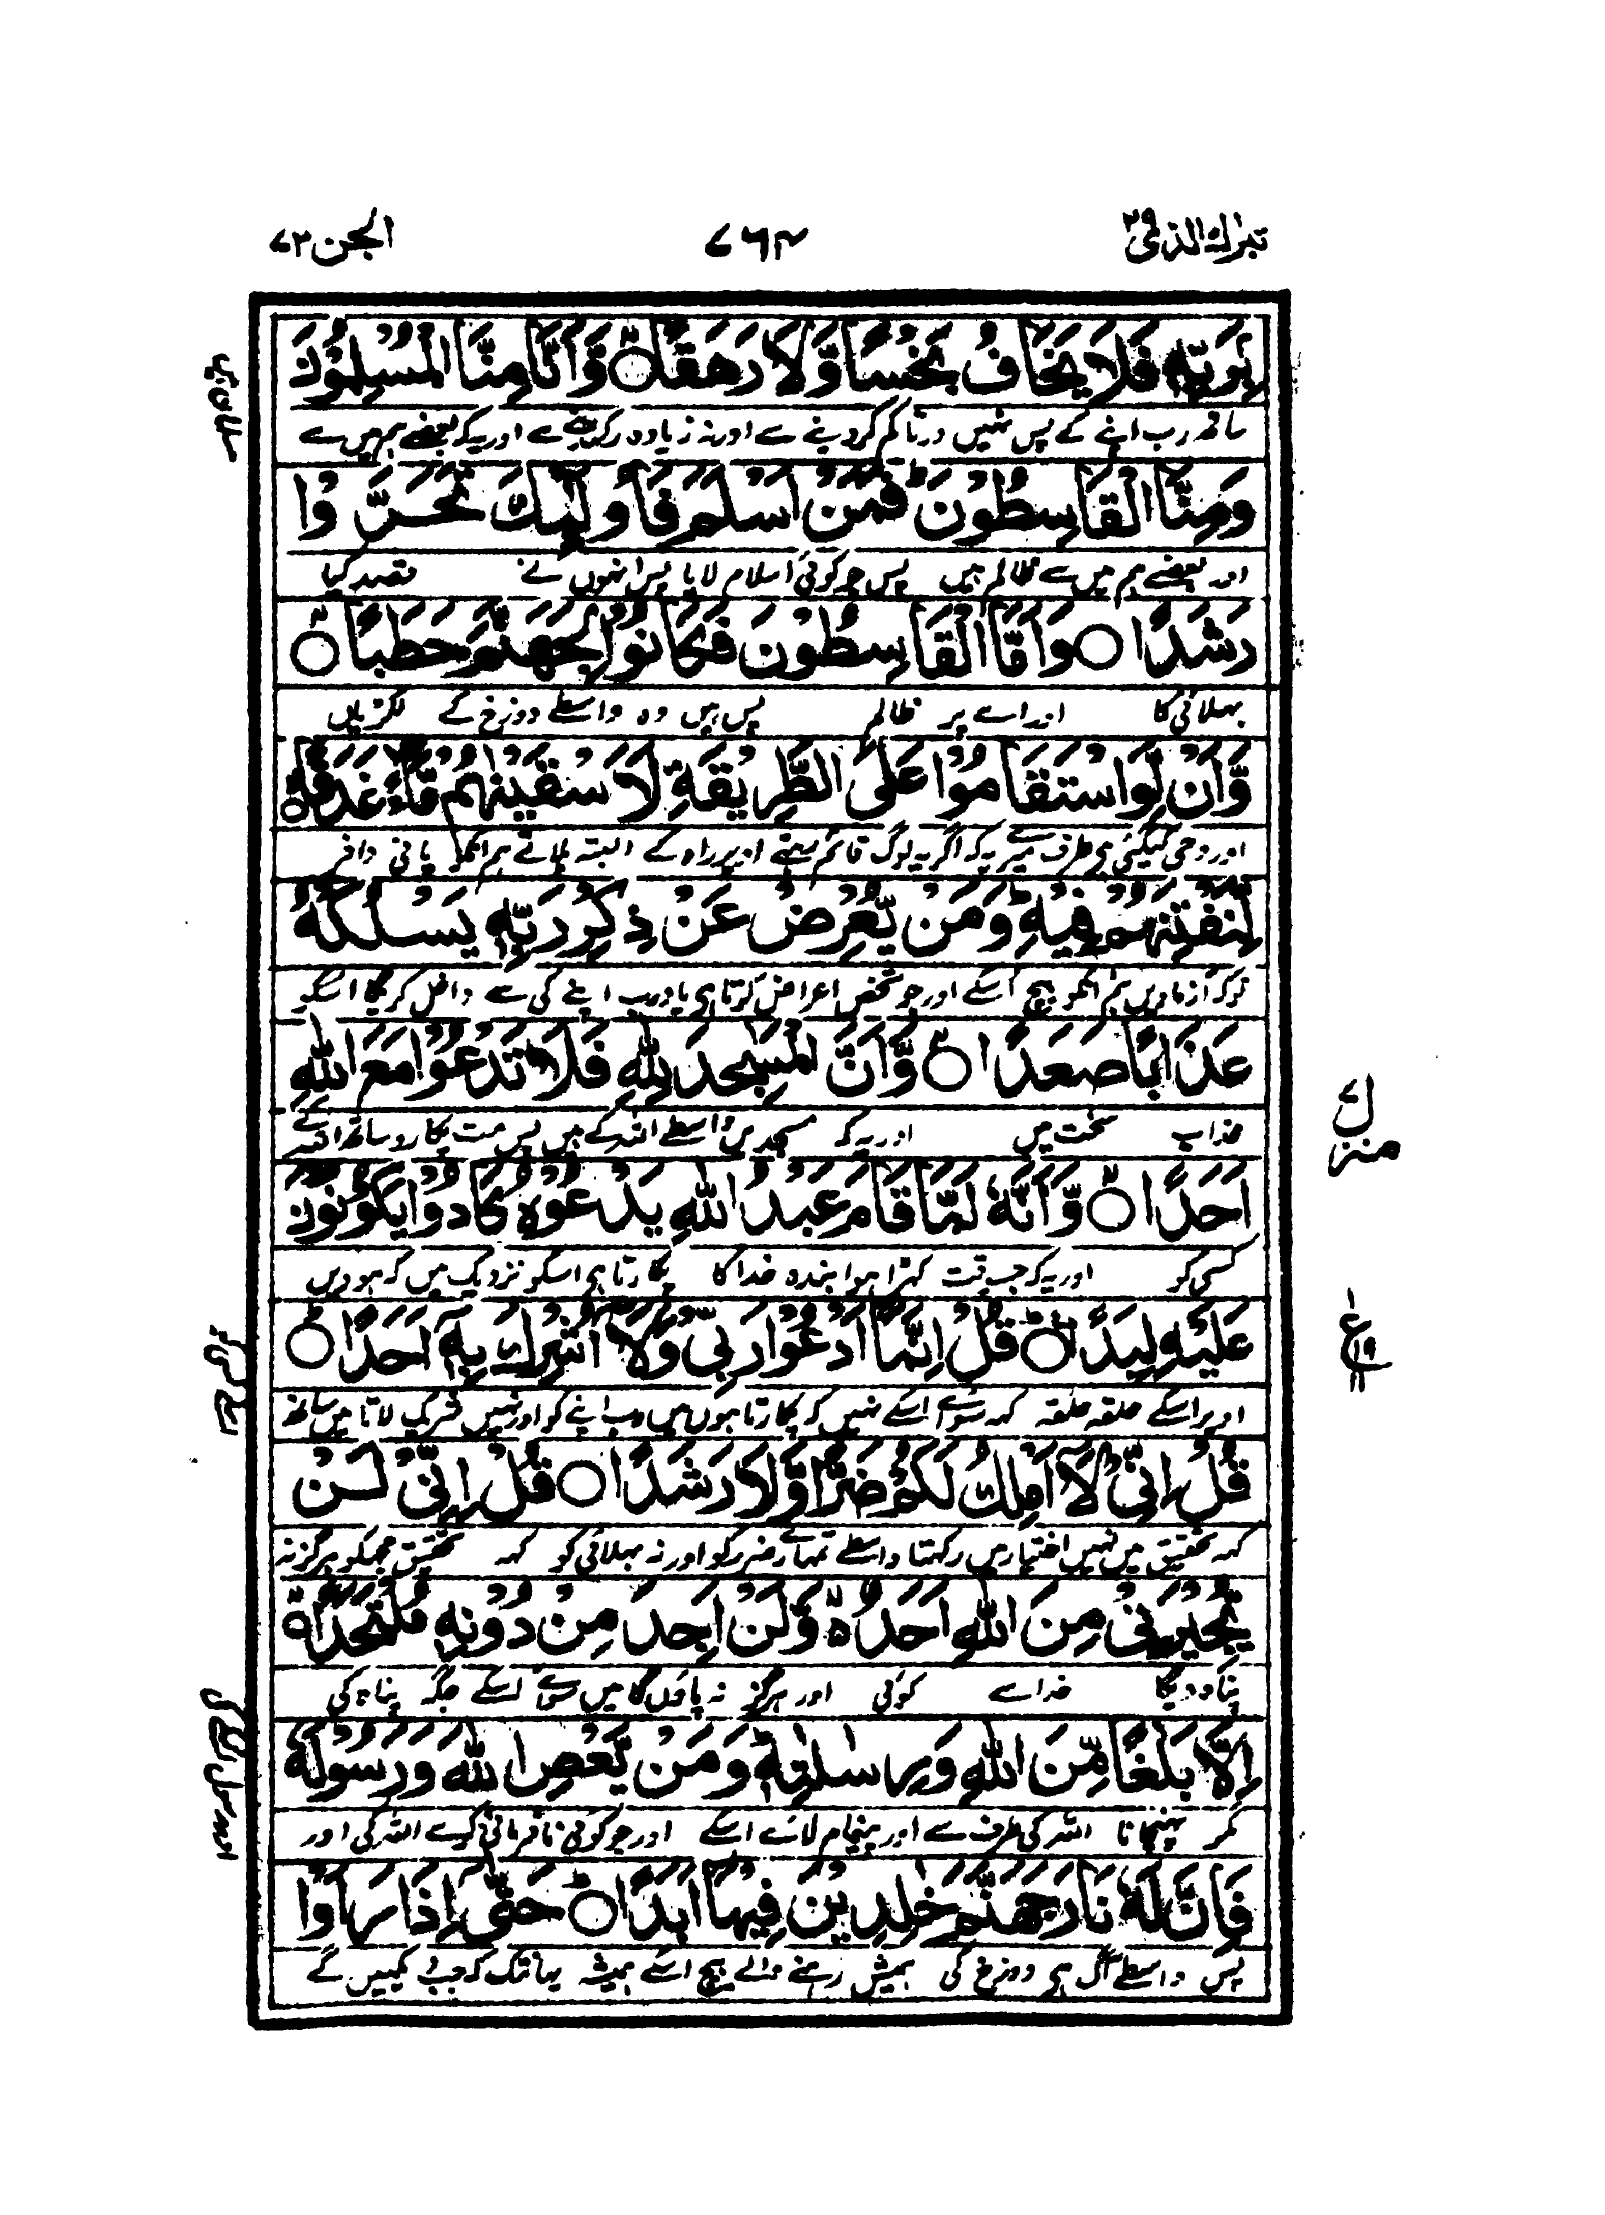 تبرك الذی ۲۹
۷۶۴
الجن ۷۲
بِرَبِّهٖ فَلَا يَخَافُ بَخْسًا وَّلَا رَهَقًا ۝ وَّاَنَّا مِنَّا الْمُسْلِمُوْنَ
ساتھ رب اپنے کے پس نہیں ڈرتا کم کر دینے سے اور نہ زیادہ رکھنے سے اور یہ کہ بعضے ہم میں سے
وَمِنَّا الْقَاسِطُوْنَ ؕ فَمَنْ اَسْلَمَ فَاُولٰٓئِكَ تَحَرَّوْا
اور بعضے ہم میں سے ظالم ہیں پس جو کوئی اسلام لایا پس انہوں نے قصد کیا
رَشَدًا ۝ وَاَمَّا الْقَاسِطُوْنَ فَكَانُوْا لِجَهَنَّمَ حَطَبًا ۝
بھلائی کا اور اے پر ظالم پس ہیں وہ واسطے دوزخ کے لکڑیاں
وَّاَنْ لَّوِ اسْتَقَامُوْا عَلَى الطَّرِيْقَةِ لَاَسْقَيْنٰهُمْ مَّآءً غَدَقًا ۝
اور وحی کیگئی ہی طرف میرے یہ کہ اگر یہ لوگ قائم رہتے اوپر راہ کے البتہ پلاتے ہم انکو پانی وافر
لِّنَفْتِنَهُمْ فِيْهِ ؕ وَمَنْ يُّعْرِضْ عَنْ ذِكْرِ رَبِّهٖ يَسْلُكْهُ
تو کہ آزماویں ہم انکو بیچ اسکے اور جو شخص اعراض کرتا ہی یاد رب اپنے کی سے داخل کریگا اسکو
عَذَابًا صَعَدًا ۝ وَّاَنَّ الْمَسٰجِدَ لِلّٰهِ فَلَا تَدْعُوْا مَعَ اللّٰهِ
عذاب سخت میں اور یہ کہ مسجدیں واسطے اللہ کے ہیں پس مت پکارو ساتھ اللہ کے
اَحَدًا ۝ وَّاَنَّهٗ لَمَّا قَامَ عَبْدُ اللّٰهِ يَدْعُوْهُ كَادُوْا يَكُوْنُوْنَ
کسی کو اور یہ کہ جب وقت کھڑا ہوا بندہ خدا کا پکارتا ہی اسکو نزدیک ہیں کہ ہوویں
عَلَيْهِ لِبَدًا ۝ قُلْ اِنَّمَآ اَدْعُوْا رَبِّيْ وَلَآ اُشْرِكُ بِهٖٓ اَحَدًا ۝
اوپر اسکے حلقہ حلقہ کہہ سوائے اسکے نہیں کہ پکارتا ہوں میں رب اپنے کو اور نہیں شریک لاتا میں ساتھ
قُلْ اِنِّيْ لَآ اَمْلِكُ لَكُمْ ضَرًّا وَّلَا رَشَدًا ۝ قُلْ اِنِّيْ لَنْ
کہہ تحقیق میں نہیں اختیار میں رکھتا واسطے تمہارے ضرر کو اور نہ بھلائی کو کہہ تحقیق مجھکو ہرگز نہ
يُّجِيْرَنِيْ مِنَ اللّٰهِ اَحَدٌ ۙ وَّلَنْ اَجِدَ مِنْ دُوْنِهٖ مُلْتَحَدًا ۝
پناہ دیگا خدا سے کوئی اور ہرگز نہ پاؤں گا میں سوائے اسکے جگہ پناہ کی
اِلَّا بَلٰغًا مِّنَ اللّٰهِ وَرِسٰلٰتِهٖ ؕ وَمَنْ يَّعْصِ اللّٰهَ وَرَسُوْلَهٗ
مگر پہنچانا اللہ کی طرف سے اور پیغام لانے اسکے اور جو کوئی نافرمانی کرے اللہ کی اور
فَاِنَّ لَهٗ نَارَ جَهَنَّمَ خٰلِدِيْنَ فِيْهَآ اَبَدًا ۝ حَتّٰٓى اِذَا رَاَوْا
پس واسطے آگ ہی دوزخ کی ہمیش رہنے والے بیچ اسکے ہمیشہ یہانتک کہ جب دیکھیں گے
منزل ۷